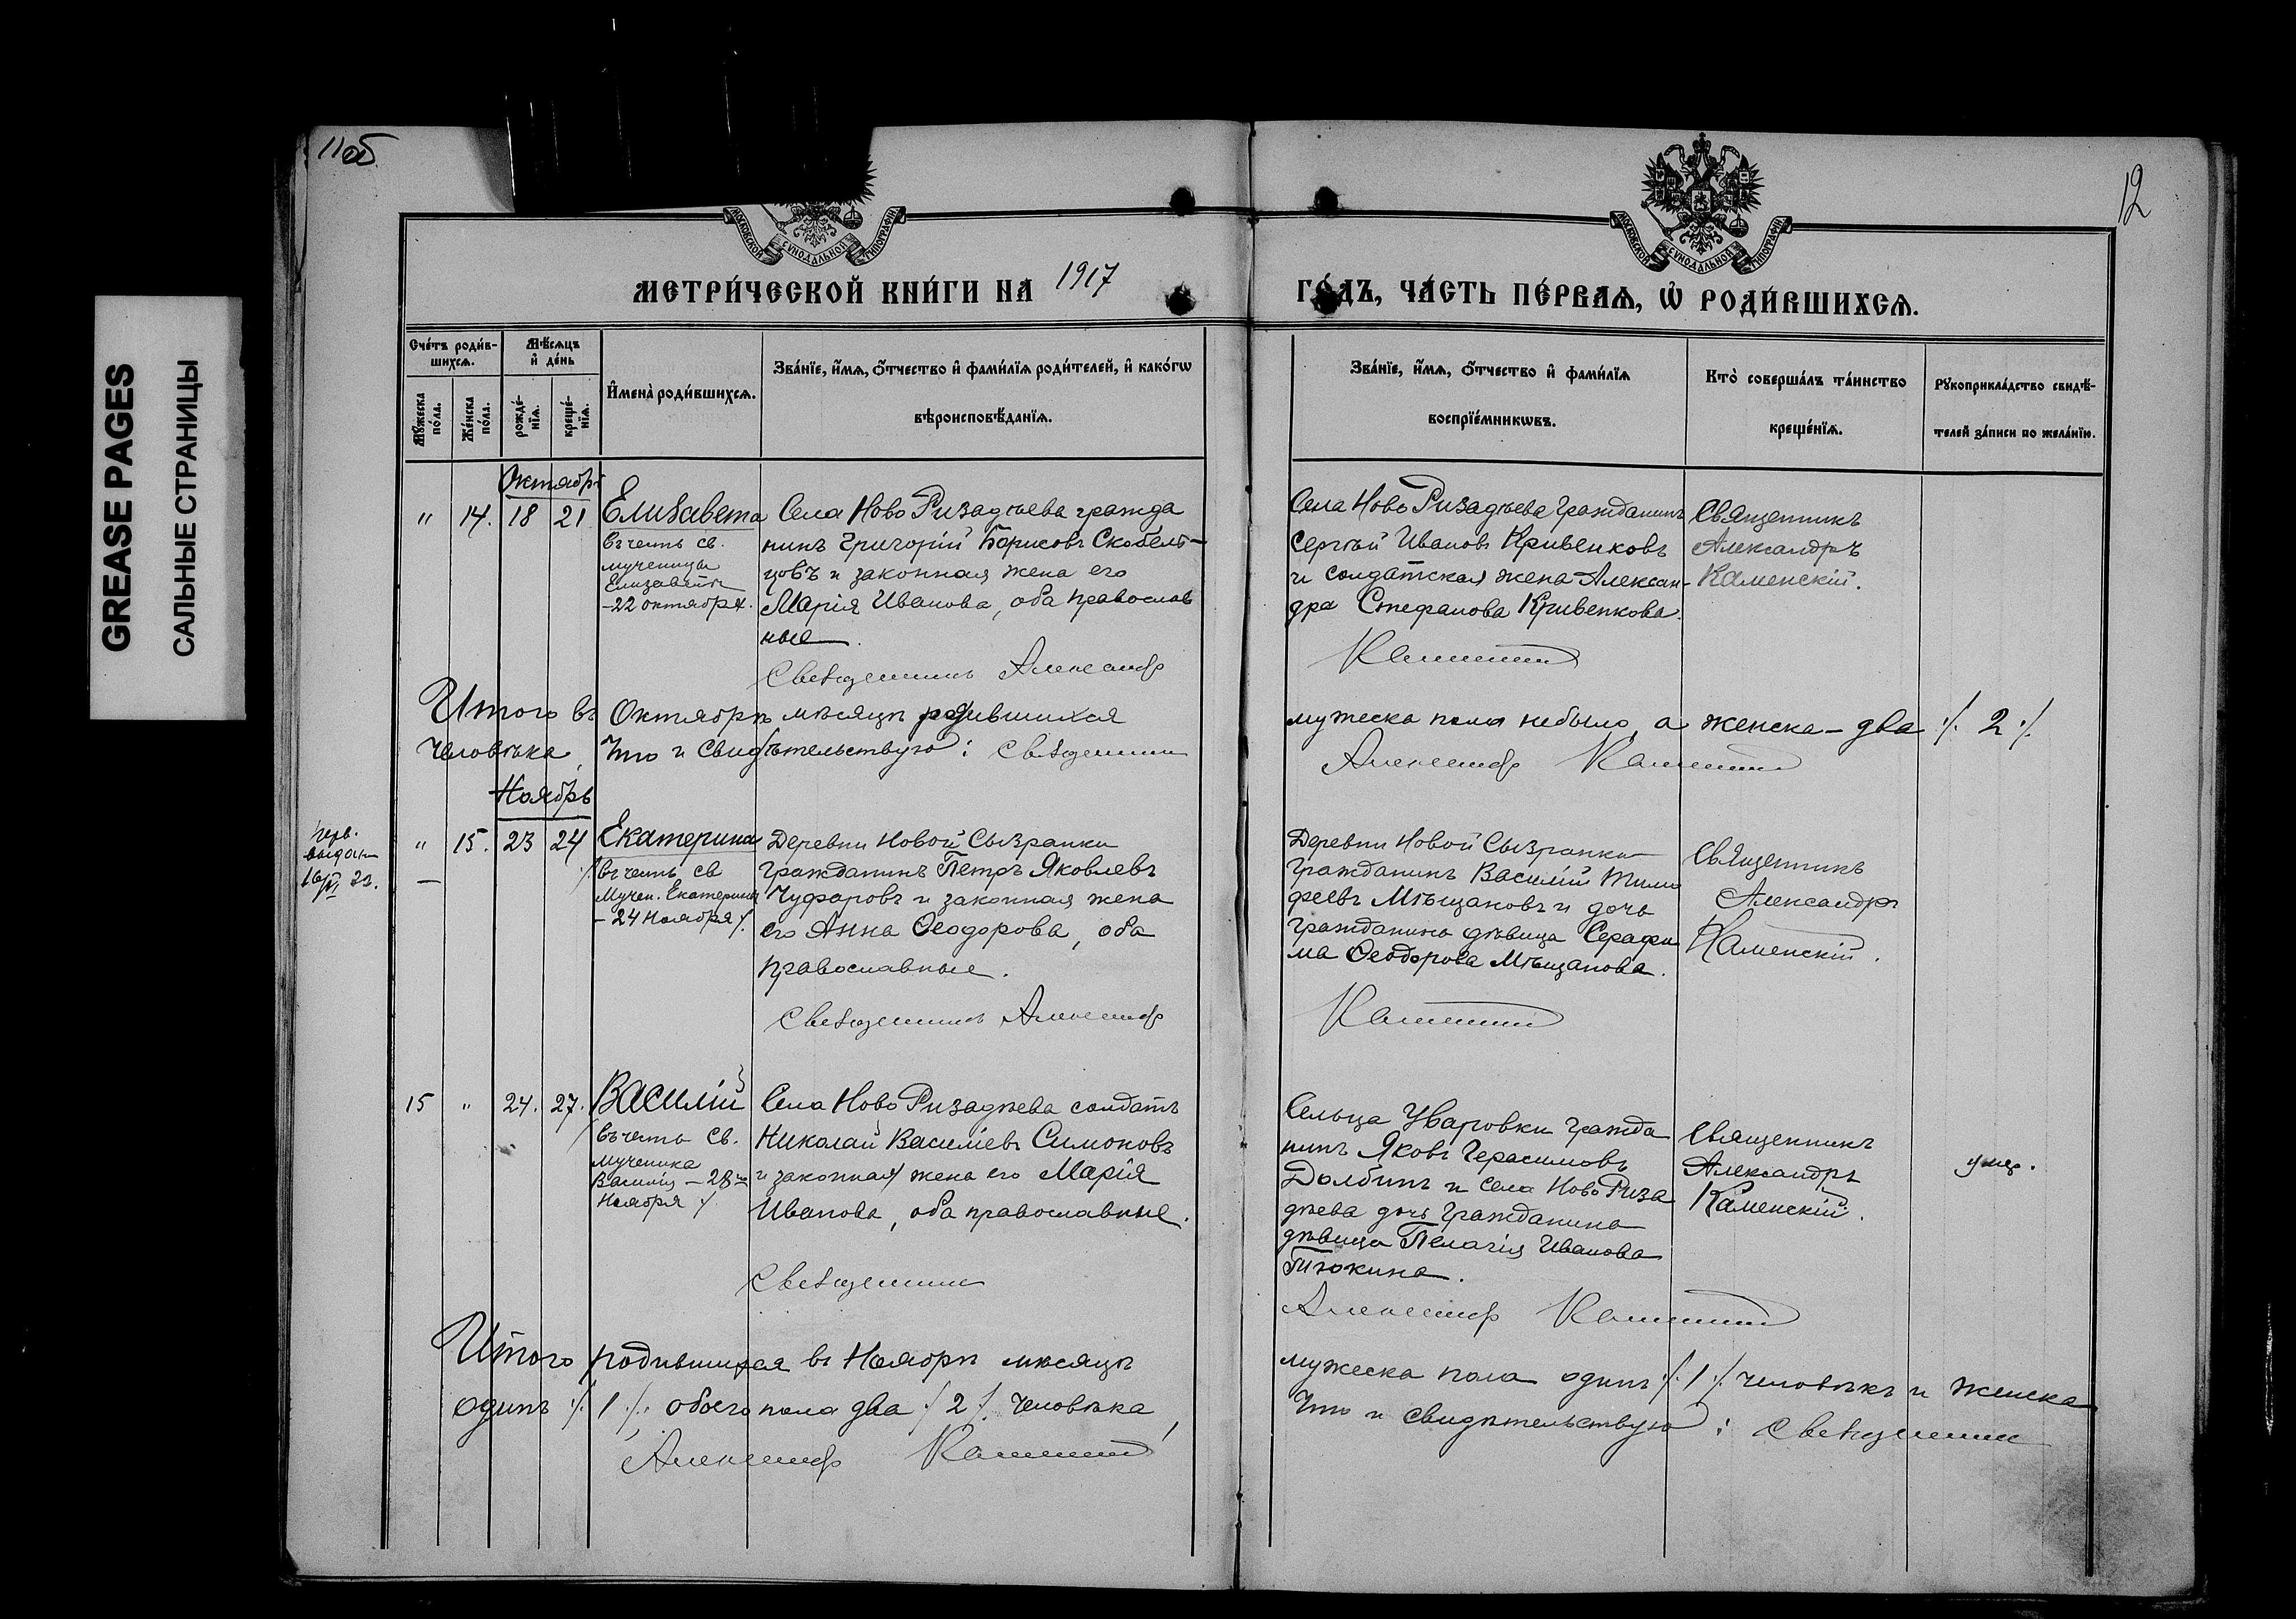 GREASE PAGES
САЛЬНЫЕ СТРАНИЦЫ
11 об
12
МОСКОВСКОЙ СУНОДАЛЬНОЙ ТИПОГРАФІИ
МОСКОВСКОЙ СУНОДАЛЬНОЙ ТИПОГРАФІИ
МЕТРИ́ЧЕСКОЙ КНИ́ГИ НА 1917
ГО́ДЪ, ЧА́СТЬ ПЕ́РВАѦ, Ѡ҆ РОДИ́ВШИХСѦ.
Сче́тъ роди́в-
шихсѧ.
Мѣ́сѧцъ
и҆ де́нь
Мꙋ́жеска
по́ла.
Же́нска
по́ла.
рожде́-
нїѧ.
креще́-
нїѧ.
И҆мена̀ роди́вшихсѧ.
Зва́нїе, и҆́мѧ, ѻ҆́тчество и҆ фами́лїѧ роди́телей, и҆ како́гѡ
вѣроисповѣ́данїѧ.
Зва́нїе, и҆́мѧ, ѻ҆́тчество и҆ фами́лїѧ
воспрїе́мникѡвъ.
Кто̀ соверша́лъ та́инство
креще́нїѧ.
Рꙋкоприкла́дство свидѣ́-
телей за́писи по жела́нїю.
Октябрь
" 14. 18 21
Елизавета
въ честь св.
мученицы
Елизаветы
- 22 октября.
Села Ново Ризадѣева гражда
нинъ Григорій Борисовъ Скобель-
цовъ и законная жена его
Марія Иванова, оба православ
ные.
Священникъ Александръ
Села Ново Ризадѣева гражданинъ
Сергѣй Ивановъ Кривенковъ
и солдатская жена Алексан-
дра Стефанова Кривенкова.
Каменскій
Священникъ
Александръ
Каменскій.
Итого въ Октябрѣ мѣсяцѣ родившихся
мужеска пола небыло, а женска - два ·/. 2 ·/.
человѣка, что и свидѣтельствую: Священникъ
Александръ Каменскій
Ноябрь
" 15. 23 24
выдан
Екатерина
въ честь св
Мучен. Екатерины
- 24 Ноября ·/.
Деревни Новой Сызранки
гражданинъ Петръ Яковлевъ
Чуфаровъ и законная жена
его Анна Ѳеодорова, оба
православные.
Священникъ Александръ
Деревни Новой Сызранки
гражданинъ Василій Тимо
феевъ Мѣщановъ и дочь
гражданина дѣвица Серафи
ма Ѳеодорова Мѣщанова.
Каменскій
Священникъ
Александръ
Каменскій.
15 " 24. 27.
Василій
въ честь Св.
Мученика
Василія - 28го
Ноября ·/.
Села Ново Ризадѣева солдатъ
Николай Василіевъ Симоновъ
и законная жена его Марія
Иванова, оба православные.
Священникъ
Сельца Уваровки гражда
нинъ Яковъ Герасимовъ
Долбинъ и села Ново Риза
дѣева дочь гражданина
дѣвица Пелагія Иванова
Тюкина.
Александръ Каменскій
Священникъ
Александръ
Каменскій.
умер.
Итого родившихся въ Ноябрѣ мѣсяцѣ
мужеска пола одинъ ·/. 1 ·/. человѣкъ и женска
одинъ ·/. 1 ·/., обоего пола два ·/. 2 ·/. человѣка,
что и свидѣтельствую: Священникъ
Александръ Каменскій